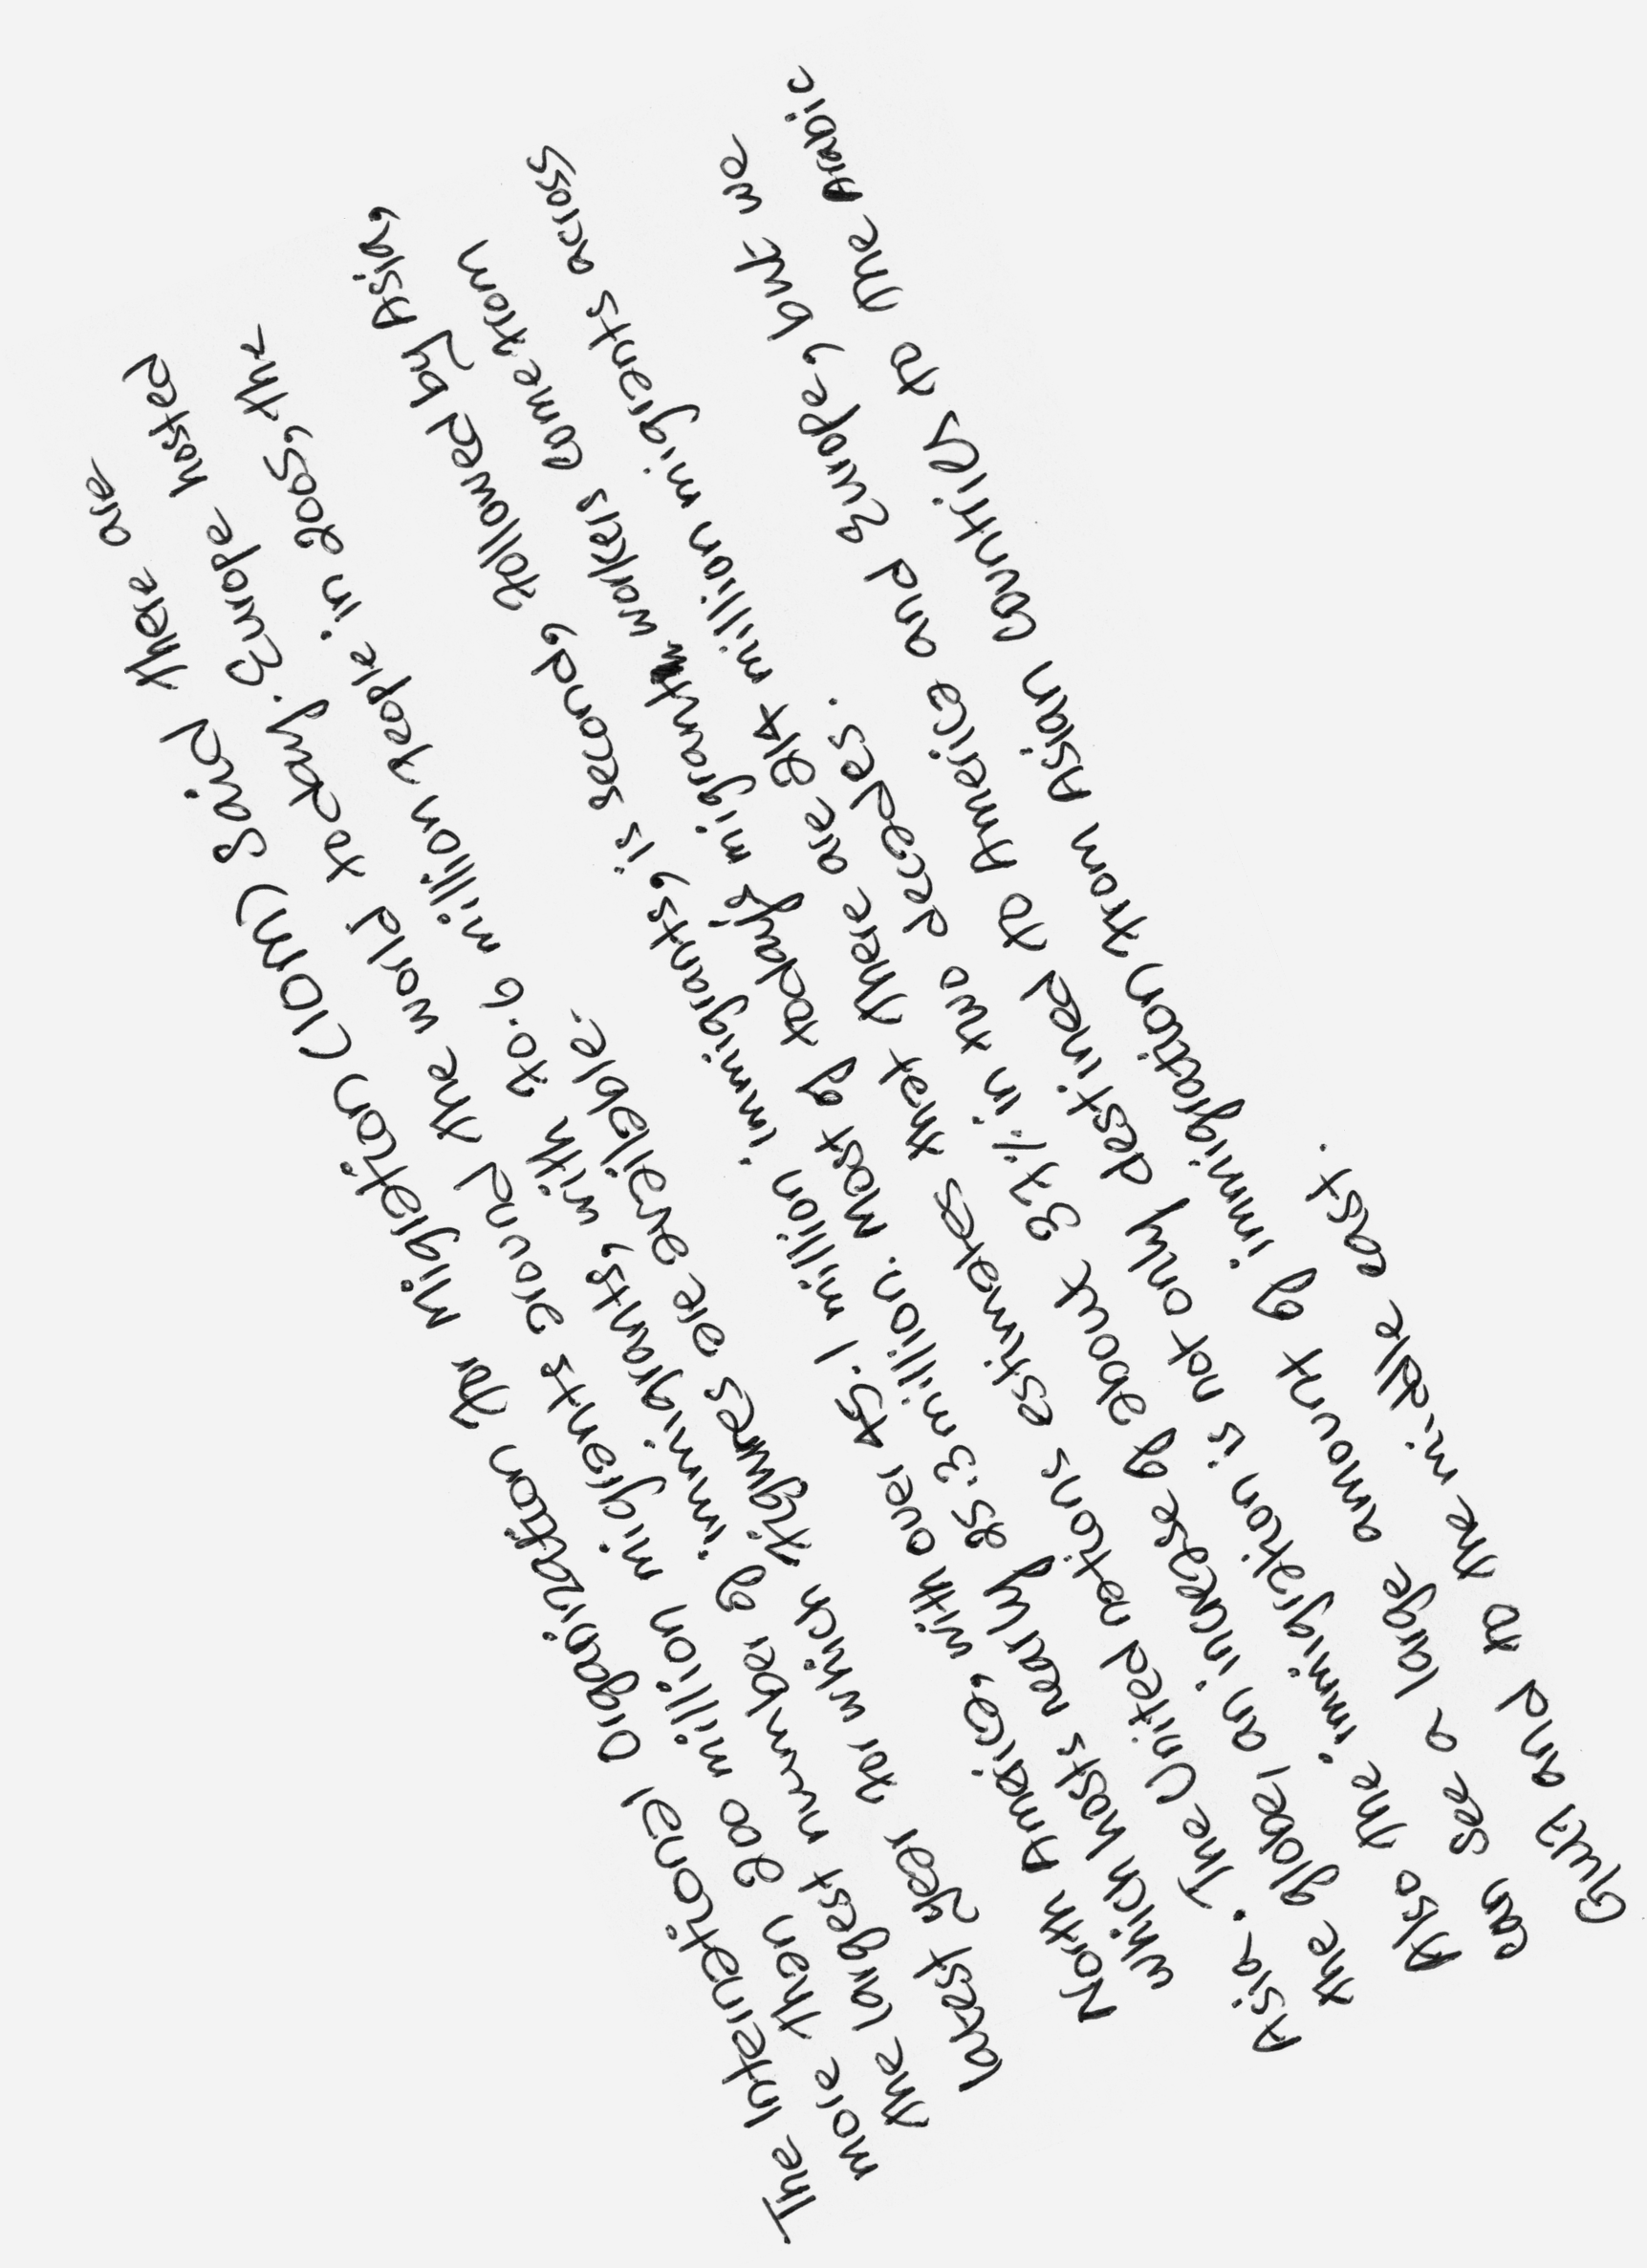 The International Organization for Migration (IOM) Said there are
more than 200 million migrants around the world today. Europe hosted
the largest number of immigrants, with 70.6 million people in 2005, the
latest year for which figures are available.
North America, with over 45.1 million immigrants, is second, followed by Asia,
which hosts nearly 25.3 million. Most of today's migrant workers come from
Asia. The United nations estimates that there are 214 million migrants across
the globe, an increase of about 37% in two decades.
Also the immigration is not only destined to America and Europe, but we
can see a large amount of immigration from Asian countries to the Arabic
Gulf and to the middle east.